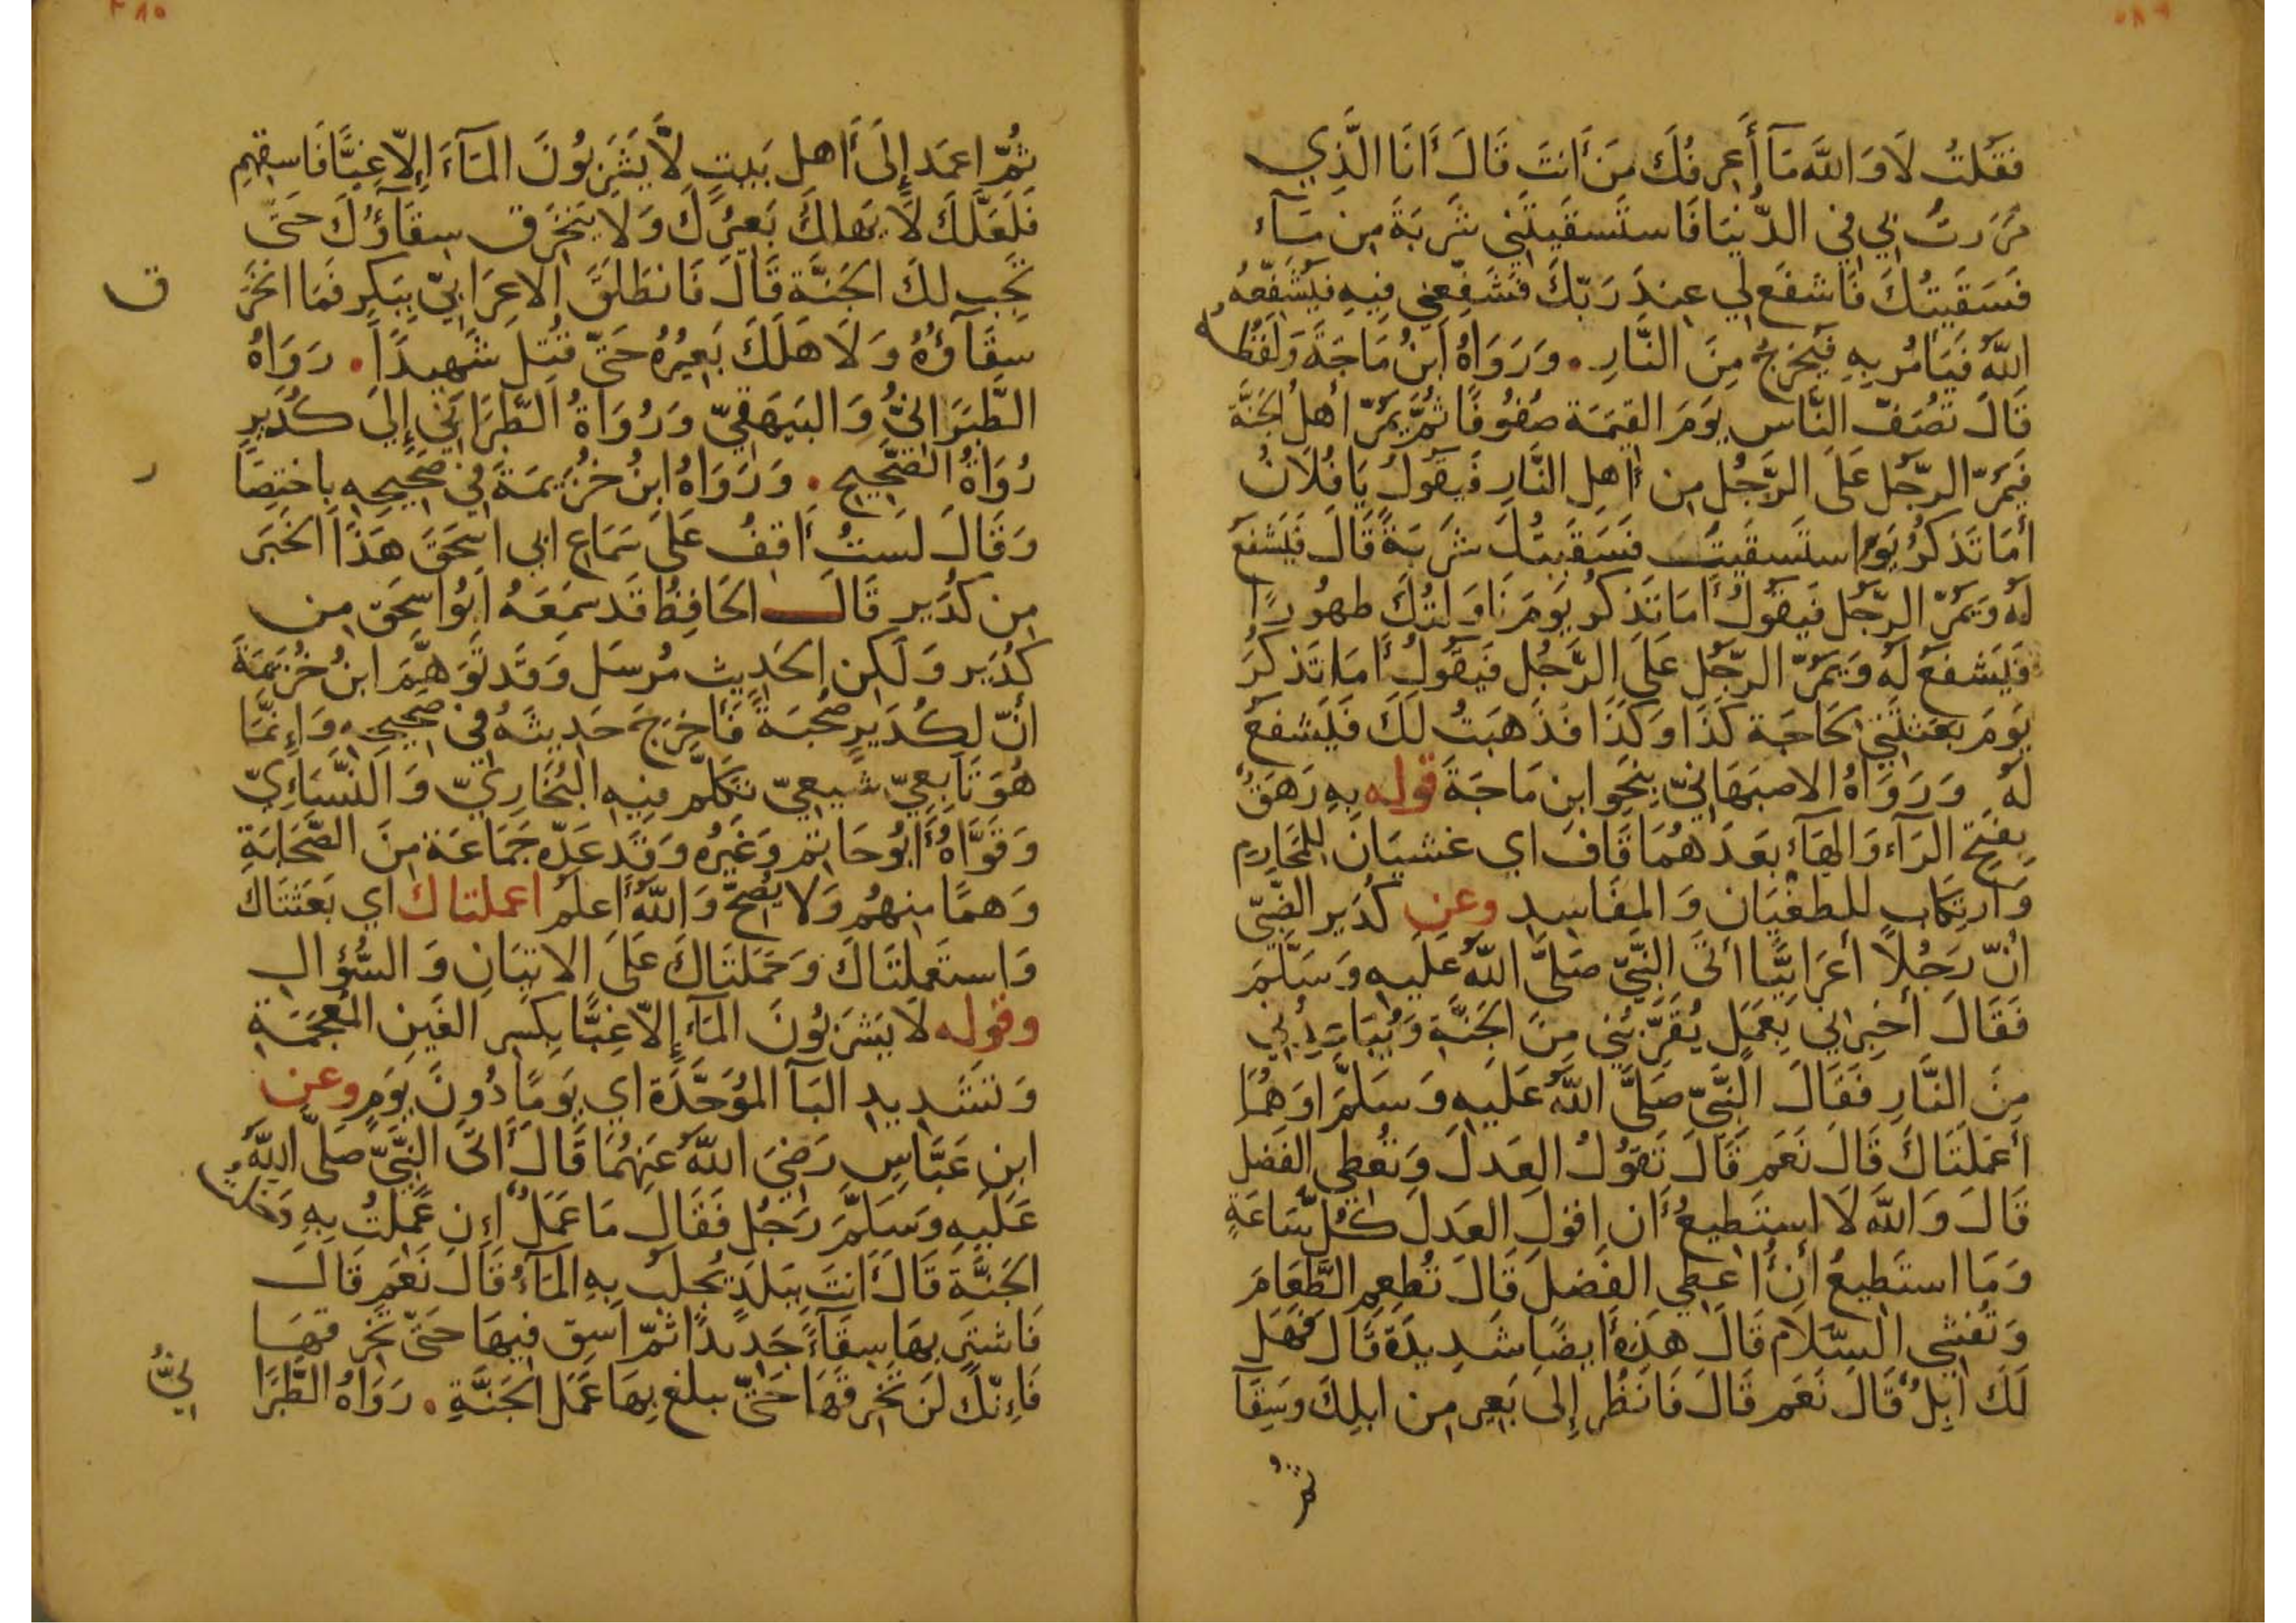 فَقُلتُ لَا وَ اللَّه مَا أَعرِفُكَ مَن أَنتَ قَالَ أَنَا الَّذِي
مَرَرتُ بِي فِي الدُّنيَا فَاستَسقَيتَنِي شَربَةً مِن مَآء
فَسَقَيتُكَ فَاشفَع لِي عِندَ رَبِّكَ فَشَفِّعنِي فِيهِ فَيُشَفِّعُهُ
اللَّهُ فَيَأمُر بِهِ فَيَخرُجُ مِنَ النَّارِ . وَرَوَاهُ ابنُ مَاجَةَ وَلَفظُه
قَالَ تُصَفّ النَّاس يَومَ القِيٰمَة صُفُوفًا ثُمَّ يَمُرّ أهلُ الجَنَّة
فَيَمُرّ الرَّجُل عَلَى الرَّجُل مِن أَهلِ النَّارِ فَيَقُولُ يَا فُلَانُ
أَمَا تَذكُرُ يَومَ استَسقَيتَ فَسَقَيتُكَ شَربَةً قَالَ فَيَشفَع
لَهُ وَيَمُرّ الرَّجُل فَيَقُولُ أَمَا تَذكُر يَومَ نَاوَلتُكَ طَهُورًا
فَيَشفَعُ لَهُ وَيَمُرّ الرَّجُل عَلَى الرَّجُل فَيَقُولُ أَمَا تَذكُرَ
يَومَ بَعَثتَنِي لحَاجَة كَذَا وَكَذَا فَذَهَبتُ لَكَ فَيَشفَعُ
لَهُ وَرَوَاهُ الاصبَهَانِيّ بِنَحوِ ابنِ مَاجَةَ قوله بِهِ رَهَقٌ
بِفَتحِ الرَّآء وَالهَآء بَعدَهُمَا قَاف اي غَشيَان لِلمَحَارِم
وَارتِكَاب لِلطُغيَان وَالمفَاسِد وعن كُدَير الضَّبِّيّ
أنّ رَجُلًا أعرَابِيًّا أتَى النَّبِيّ صَلَّى اللَّهُ عَلَيهِ وَسَلَّمَ
فَقَالَ أخبِرنِي بِعَمَلٍ يُقَرِّبُنِي مِنَ الجَنَّةِ وَيُبَاعِدُنِي
مِنَ النَّارِ فَقَالَ النَّبِيّ صَلَّى اللَّهُ عَلَيهِ وَسَلَّمَ اوَهُمَا
أعمَلَتَاكَ قَالَ نَعَم قَالَ تَقُولُ العَدلَ وَتُعطِي الفَضل
قَالَ وَاللَّه لَا استَطِيعُ أَن اقولَ العَدلَ كُلّ سَاعَةٍ
وَمَا استَطِيعُ أن أُعطِي الفَضلَ قَالَ تُطعِم الطَّعَامَ
وَتُفشِي السَّلَام قَالَ هَذِهِ أَيضًا شَدِيدَة قَالَ فَهَل
لَكَ ابِلٌ قَالَ نَعَم قَالَ فَانظُر إِلَى بَعِير مِن ابلِكَ وَسِقَآ
ثُمّ
ثُمّ اعمَد إِلَى أَهلِ بَيتٍ لَّا يَشرَبُونَ المَآءَ إِلّا غِبًّا فَاسقِهِم
فَلَعَلَّكَ لَا يَهلِكَ بَعِيرُكَ وَلَا يَنخَرق سِقَآؤُكَ حَتَّى
تَجِب لَكَ الجَنَّة قَالَ فَانطَلَقَ الاعرَابِيّ يُكَبِّر فَمَا انخَرَ
ق
سِقَآؤُهُ وَلَا هَلَكَ بَعِيرُهُ حَتّى قُتِلَ شَهِيدًا . رَوَاهُ
الطَّبَرَانِيُّ وَالبَيهَقِيّ وَرُوَاةُ الطَّبَرَانِي إِلَى كُدَيرٍ
رُوَاةُ الصَّحِيح . وَرَوَاهُ ابنُ خُزَيمَةَ فِي صَحِيحِهِ بِاختِصَا
ر
وَقَالَ لَستُ أَقِفُ عَلَى سَمَاعِ ابِي اسحَقَ هَذَا الخَبَر
مِن كُدَير قَالَ الحَافِظُ قَد سَمِعَهُ ابُو اسحَقَ مِن
كُدَير وَلَكِن الحَدِيث مُرسَل وَقَد تَوَهَّمَ ابنُ خُزَيمَةَ
انّ لِكُدَيرٍ صُحبَةً فَأَخرَجَ حَدِيثَهُ فِي صَحِيحِهِ وَإِنَّمَا
هُوَ تَابِعِيّ شِيعِيّ تَكَلَّم فِيهِ البُخَارِيّ وَالنَّسَائِيّ
وَقَوَّاهُ أَبُو حَاتِم وَغَيرُه وَقَد عَدّه جَمَاعَة مِنَ الصَّحَابَةِ
وَهمًا مِنهُم وَلا يَصِحّ وَاللَّهُ أَعلَم اعملتاك اي بَعَثَتَاك
وَاستَعمَلَتَاكَ وَحَمَلَتَاكَ عَلَى الاتيَانِ وَالسُّؤَال
وقوله لَا يَشرَبُونَ المَآء إِلّا غِبًّا بِكَسر الغَين المُعجَمَةِ
وَتَشدِيدِ البَآ المُوَحَّدَة اي يَومًا دُونَ يَومٍ وعن
ابنِ عَبَّاسٍ رَضِيَ اللَّهُ عَنهُمَا قَالَ أَتَى النَّبِيَّ صَلَّى اللَّهُ
عَلَيهِ وَسَلَّمَ رَجُل فَقَالَ مَا عَمَلٌ إِن عَمِلتُ بِهِ دَخَلتُ
الجَنَّةَ قَالَ أَنتَ بِبَلَدٍ يُجلَبُ بِهِ المَآءُ قَالَ نَعَم قَالَ
فَاشتَرِ بِهَا سِقَآءً جَدِيدًا ثُمّ اسقِ فِيهَا حَتّى تَخرِقهَا
فَإِنّكَ لَن تَخرِقَهَا حَتّى تبلغ بِهَا عَمَلَ الجَنَّةِ . رَوَاهُ الطَّبَرَا
نِيُّ